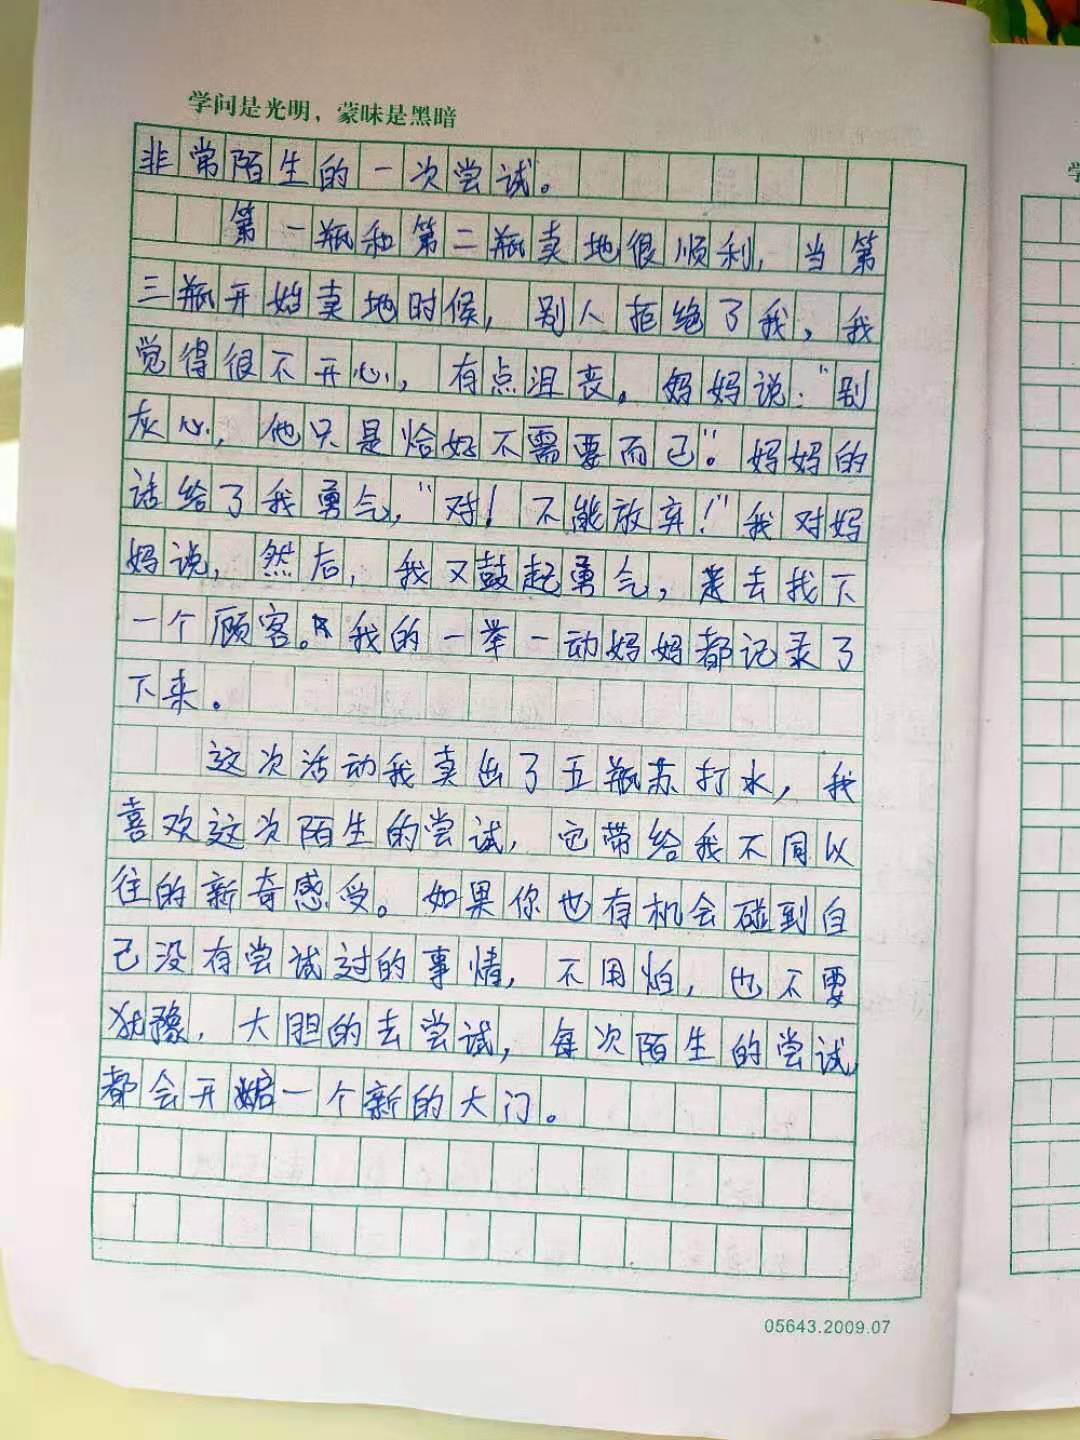 学问是光明，蒙昧是黑暗
非常陌生的一次尝试。
第一瓶和第二瓶卖地很顺利，当第
三瓶开始卖地时候，别人拒绝了我，我
觉得很不开心，有点沮丧。妈妈说：“别
灰心，他只是恰好不需要而已”。妈妈的
话给了我勇气，“对！不能放弃！”我对妈
妈说，然后，我又鼓起勇气，走去找下
一个顾客。我的一举一动妈妈都记录了
下来。
这次活动我卖出了五瓶苏打水，我
喜欢这次陌生的尝试，它带给我不同以
往的新奇感受。如果你也有机会碰到自
己没有尝试过的事情，不用怕，也不要
犹豫，大胆的去尝试，每次陌生的尝试，
都会开启一个新的大门。
05643.2009.07